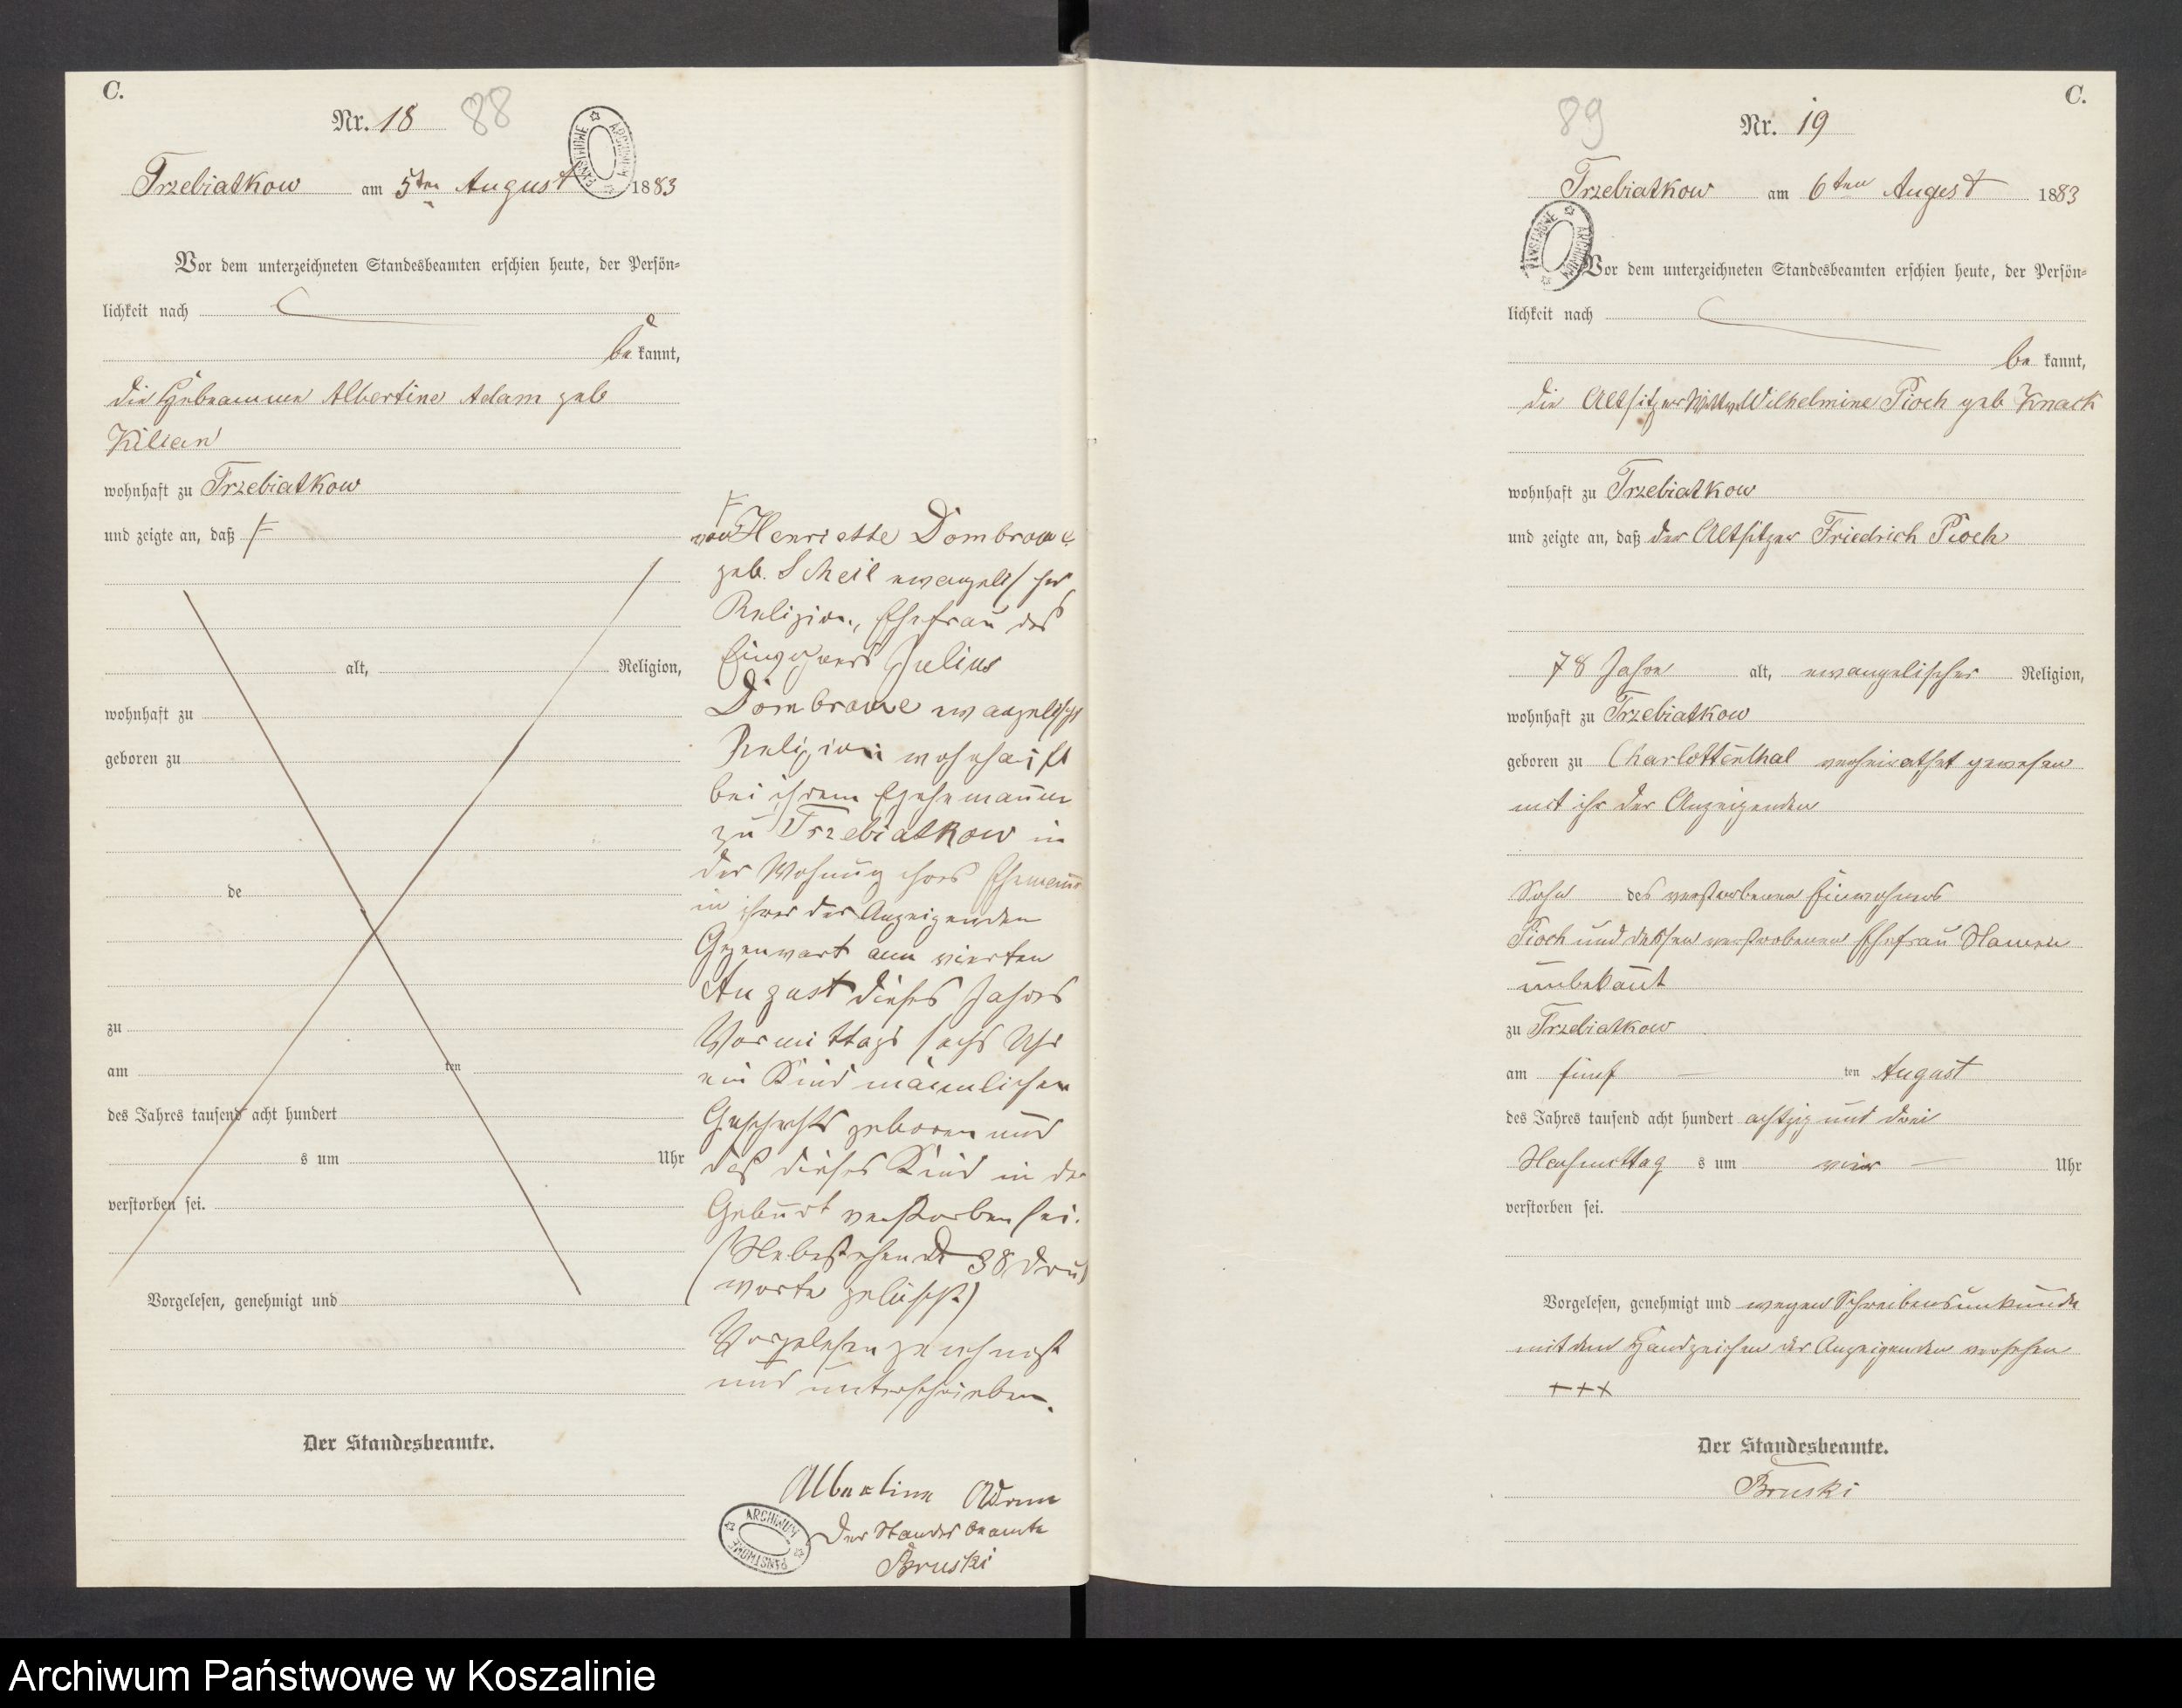 C.
Nr. 18 88
ARCHIWUM PAŃSTWOWE
Trzebiatkow am 5ten August 1883
Vor dem unterzeichneten Standesbeamten erschien heute, der Persön-
lichkeit nach
be kannt,
die Hebeamme Albertine Adam geb
Kilian
wohnhaft zu Trzebiatkow
und zeigte an, daß F
alt, Religion,
wohnhaft zu
geboren zu
de
zu
am ten
des Jahres tausend acht hundert
s um Uhr
verstorben sei.
Vorgelesen, genehmigt und
Der Standesbeamte.
F
von Henriette Dombrowe
geb. Scheil ewangelischer
Religion, Ehefrau des
Einwohners Julius
Dombrowe ewangelischer
Religion wohnhaft
bei ihrem Ehemann
zu Trzebiatkow in
der Wohnung ihres Ehemanns
in ihrer der Anzeigenden
Gegenwart am vierten
August dieses Jahres
Vormittags sechs Uhr
ein Kind männlichen
Geschlechts geboren und
daß dieses Kind in der
Geburt verstorben sei.
(Nebestehend 38 Druck
worte gelöscht)
Vorgelesen genehmigt
und unterschrieben.
Albertine Adam
Der Standesbeamte
Bruski
ARCHIWUM PAŃSTWOWE
C.
89 Nr. 19
Trzebiatkow am 6ten August 1883
ARCHIWUM PAŃSTWOWE
Vor dem unterzeichneten Standesbeamten erschien heute, der Persön-
lichkeit nach
be kannt,
die Altsitzer Wittwe Wilhelmine Pioch geb Knack
wohnhaft zu Trzebiatkow
und zeigte an, daß der Altsitzer Friedrich Pioch
78 Jahre alt, ewangelischer Religion,
wohnhaft zu Trzebiatkow
geboren zu Charlottenthal verheirathet gewesen
mit ihr der Anzeigenden
Sohn des verstorbenen Einwohners
Pioch und dessen verstorbenen Ehefrau Namen
unbekannt
zu Trzebiatkow
am fünf ten August
des Jahres tausend acht hundert achtzig und drei
Nachmittag s um vier Uhr
verstorben sei.
Vorgelesen, genehmigt und wegen Schreibensunkunde
mit dem Handzeichen der Anzeigenden versehen
+++
Der Standesbeamte.
Bruski
Archiwum Państwowe w Koszalinie